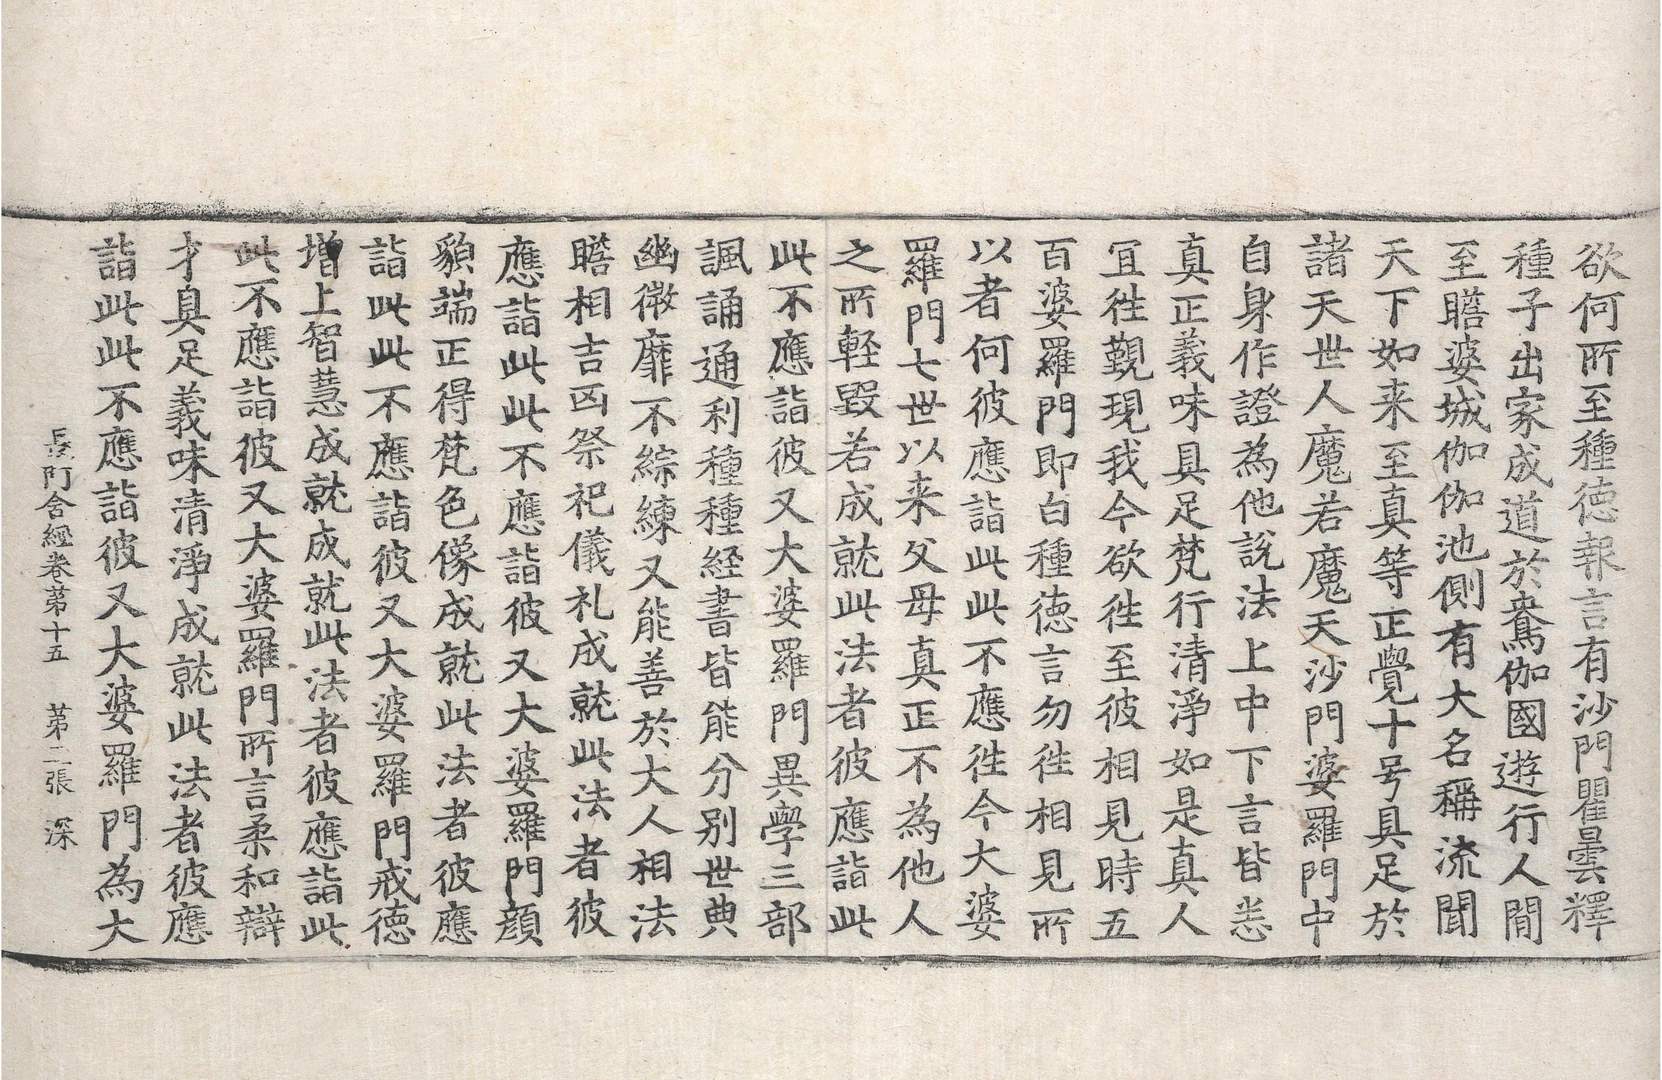 欲何所至種徳報言有沙門瞿曇釋
種子出家成道於鴦伽國遊行人間
至瞻婆城伽伽池側有大名稱流聞
天下如来至真等正覺十号具足於
諸天世人魔若魔天沙門婆羅門中
自身作證為他説法上中下言皆悉
真正義味具足梵行清淨如是真人
冝徃觀現我今欲徃至彼相見時五
百婆羅門即白種徳言勿徃相見所
以者何彼應詣此此不應徃今大婆
羅門七世以来父母真正不為他人
之所輕毀若成就此法者彼應詣此
此不應詣彼又大婆羅門異學三部
諷誦通利種種経書皆能分別世典
幽微靡不綜練又能善於大人相法
瞻相吉凶祭祀儀礼成就此法者彼
應詣此此不應詣彼又大婆羅門顔
貌端正得梵色像成就此法者彼應
詣此此不應詣彼又大婆羅門戒徳
增上智慧成就成就此法者彼應詣此
此不應詣彼又大婆羅門所言柔和辯
才具足義味清淨成就此法者彼應
詣此此不應詣彼又大婆羅門為大
長阿含經卷苐十五 苐二張 深